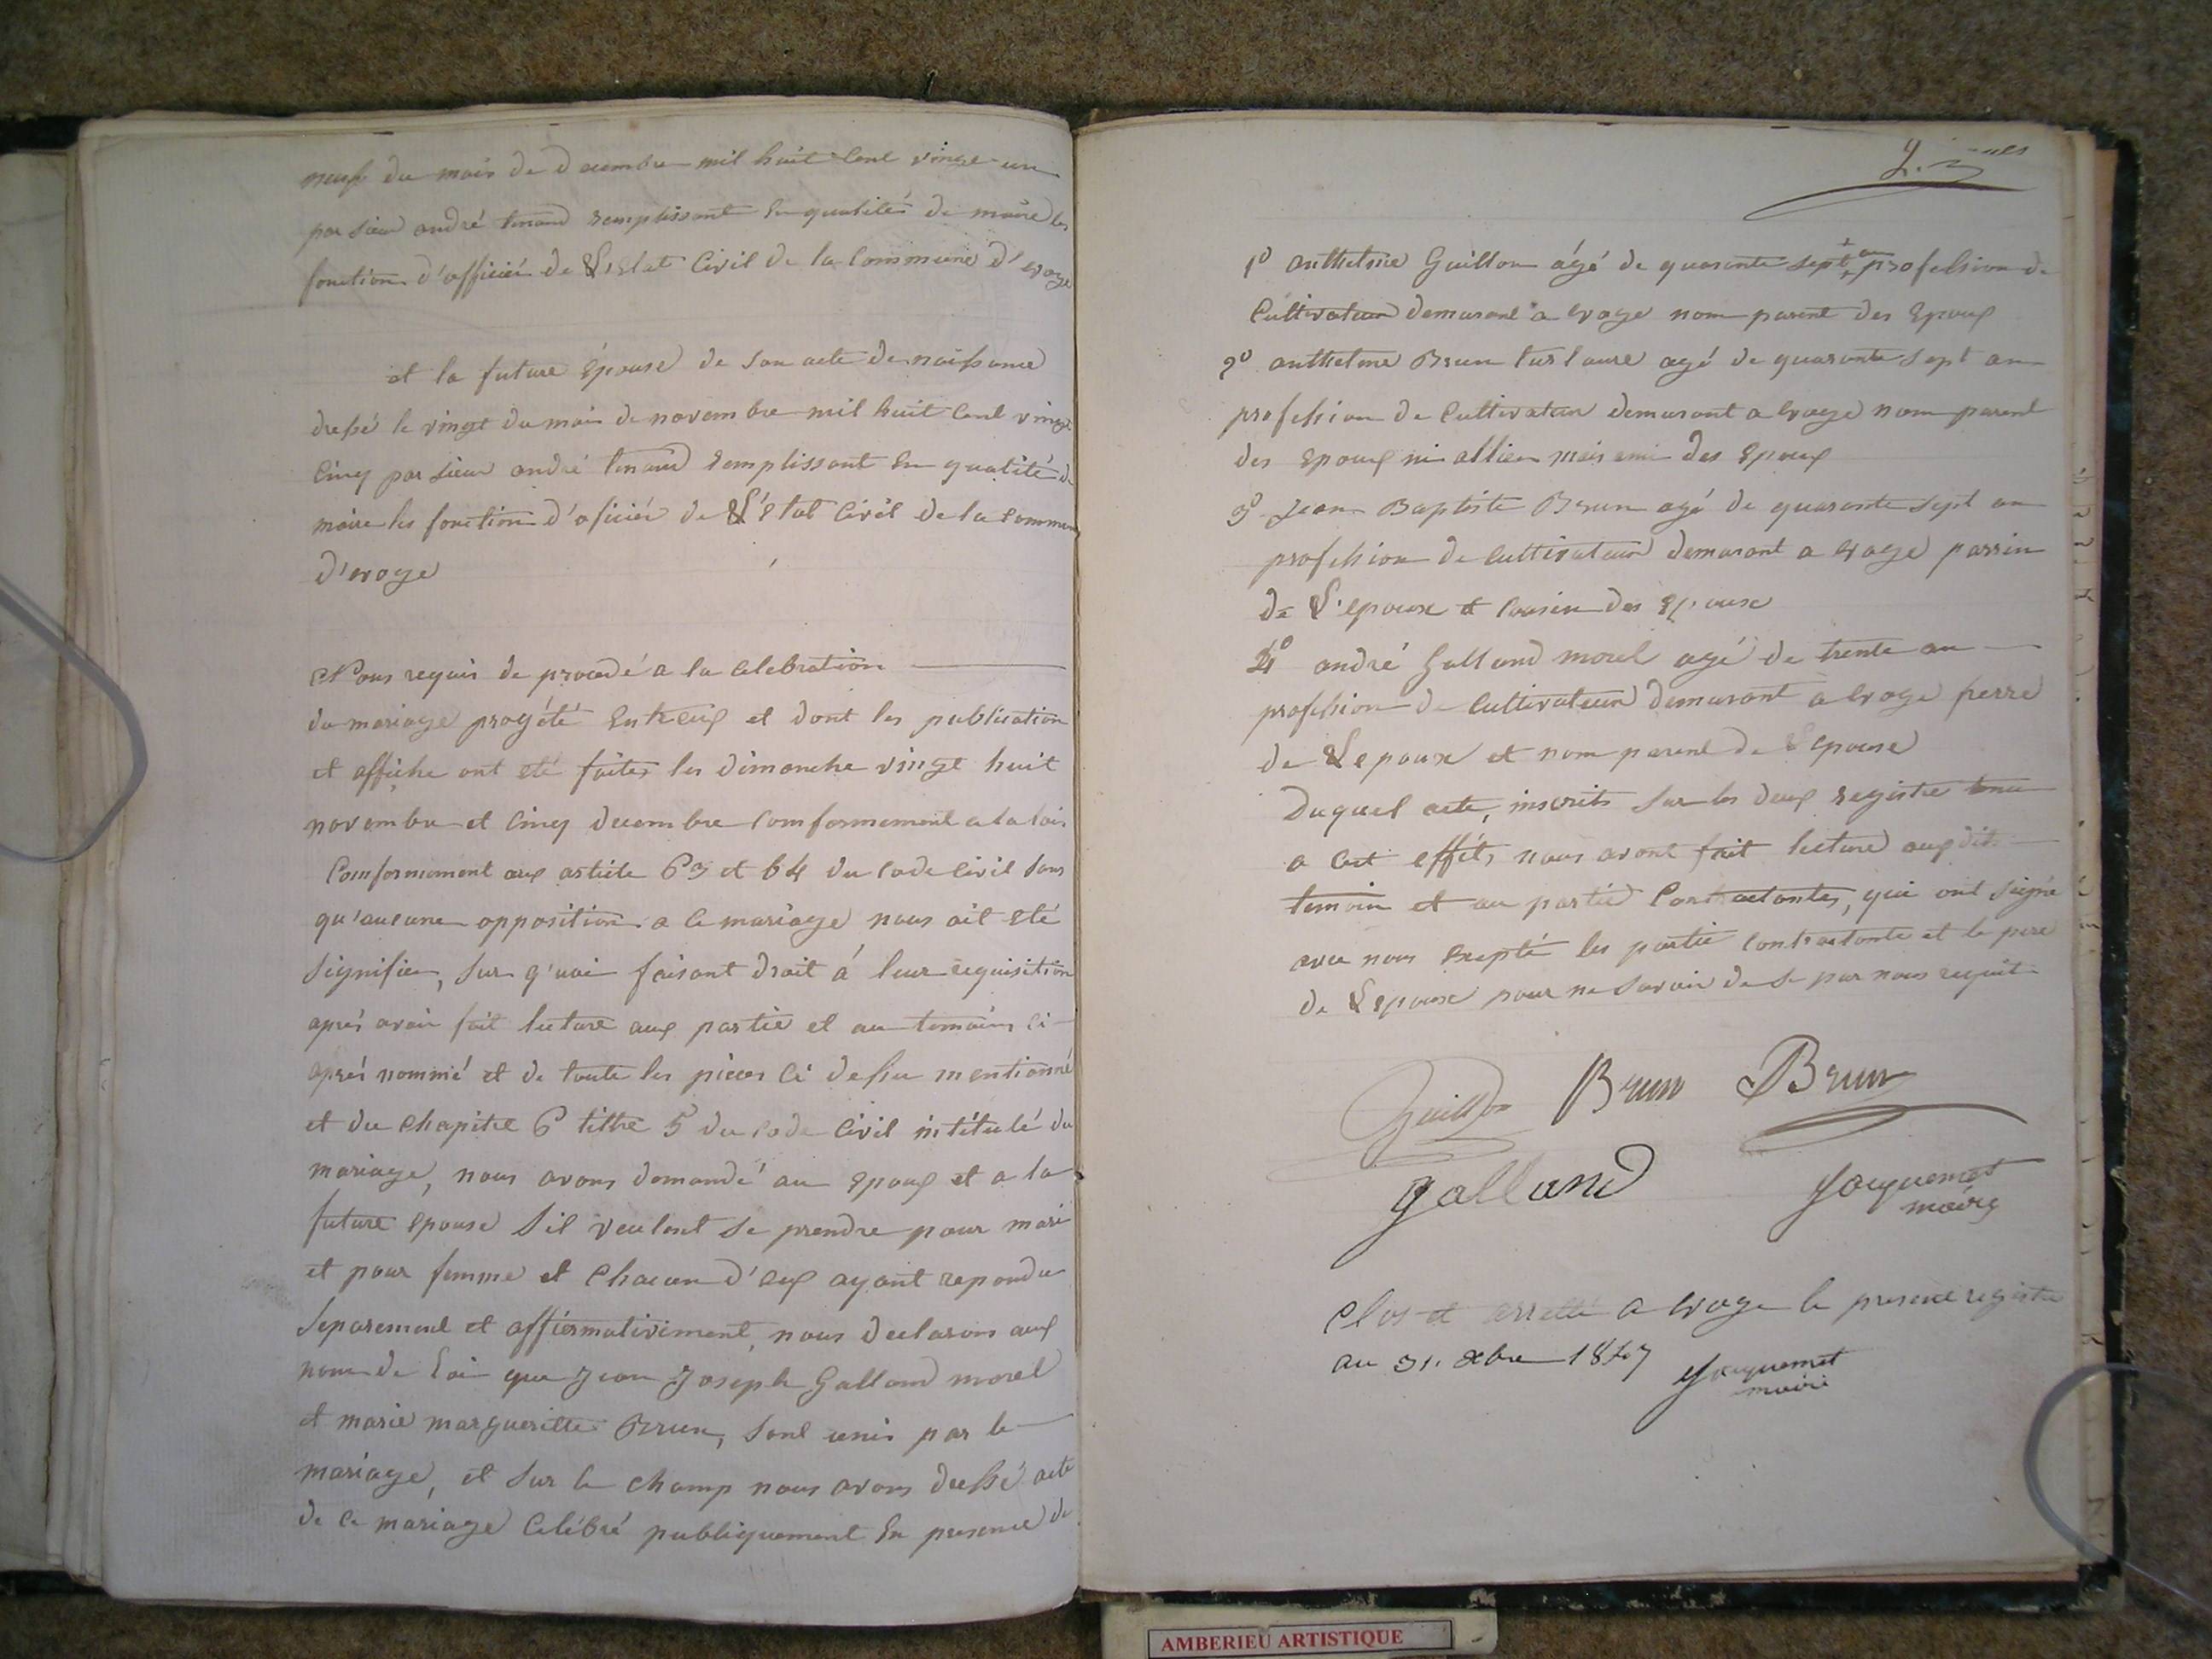 neuf du mois de decembre mil huit cent vingt un
par sieur andré tenand remplissant en qualités de maire les
fonction d'officiér de L'Etat Civil de la Commune d'evoge
et la future épouse de son acte de naissance
dressé le vingt du mois de novembre mil huit cent vingt
Cinq par sieur andré tenand remplissant en qualité de
maire les fonction d'oficiér de L'état Civil de la Commune
d'evoge
Nous requis de procedé a la celebration
du mariage progété Entreux et dont les publication
et affiche ont eté faites les dimanche vingt huit
novembre et Cinq decembre comformement a la loi
Comformement aux article 63 et 64 du Code Civil sans
qu'aucune opposition a ce mariage nous ait eté
signifier, sur q'uoi faisant droit á leur requisition
aprés avoir fait lecture aux partie et au temoins ci
aprés nommé et de toute les piéces ci dessu mentionné
et du Chapitre 6 tittre 5 du Code Civil intitulé du
mariage, nous avons demandé au Epoux et a la
future Epouse S'il veulent se prendre pour mari
et pour femme et Chacun d'eux ayant repondu
Separement et affiermativement, nous declarons aux
nom de loi que Jean Joseph Galland morel
et marie margueritte Brun, sont unis par le
mariage, et sur le champ nous avons dressé acte
de ce mariage Celébré publiquement En presence de
1º anthelme Guillon ágé de quarante sept an profession de
Cultivateur demurant a evoge nom parent des Epoux
2º anthelme Brun agé de quarante sept an
profession de Cultivateur demurant a evoge nom parent
des Epoux ni allier mais ami des Epoux
3º Jean Baptiste Brun agé de quarante sept an
profession de Cultivateur demurant a evoge parrin
de L'epouse et Cousin des Epouse
4º andré Galland morel agé de trente an
profession de Cultivateur demurant a evoge frerre
de Lepoux et nom parent de Lepouse
Duquel acte, inscrits sur les deux registre tenu
a cet efféts nous avont fait lecture aux dit
temoin et au partie Contractantes, qui ont signé
avec nous Exepté les partie contractante et le pere
de Lepouse pour ne savoir de ce par nous requit
Guillon Brun Brun
galland Jacquemet
maire
Clos et arretté a evoge le present registre
au 31. xbre 1847 Jacquemet
maire
AMBERIEU ARTISTIQUE